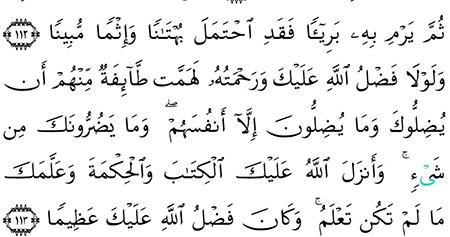 ثُمَّ يَرْمِ بِهِۦ بَرِيٓـًٔا فَقَدِ ٱحْتَمَلَ بُهْتَٰنًا وَإِثْمًا مُّبِينًا ١١٢
وَلَوْلَا فَضْلُ ٱللَّهِ عَلَيْكَ وَرَحْمَتُهُۥ لَهَمَّت طَّآئِفَةٌ مِّنْهُمْ أَن
يُضِلُّوكَ وَمَا يُضِلُّونَ إِلَّآ أَنفُسَهُمْ ۖ وَمَا يَضُرُّونَكَ مِن
شَىْءٍ ۚ وَأَنزَلَ ٱللَّهُ عَلَيْكَ ٱلْكِتَٰبَ وَٱلْحِكْمَةَ وَعَلَّمَكَ
مَا لَمْ تَكُن تَعْلَمُ ۚ وَكَانَ فَضْلُ ٱللَّهِ عَلَيْكَ عَظِيمًا ١١٣